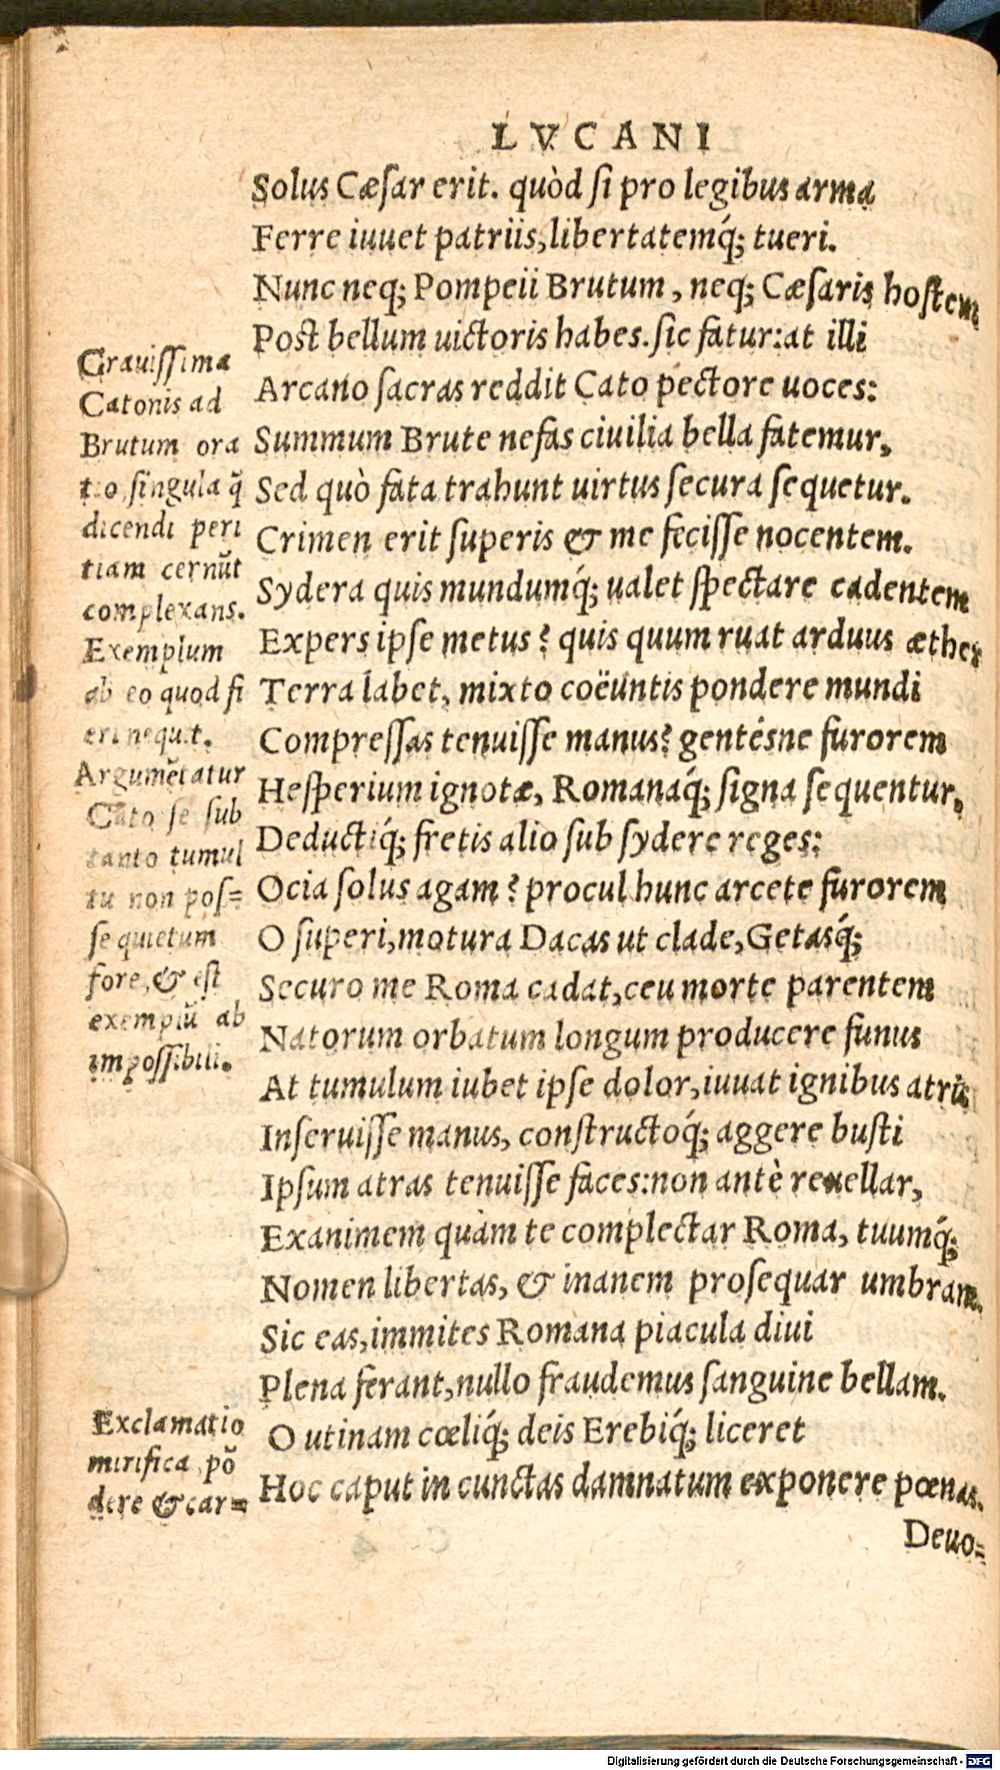 LVCANI
Solus Cæſar erit. quòd ſi pro legibus arma
Ferre iuuet patriis, libertatemq́; tueri.
Nunc neq; Pompeii Brutum, neq; Cæſaris hoſtem
Poſt bellum uictoris habes. ſic fatur: at illi
Arcano ſacras reddit Cato pectore uoces:
Summum Brute nefas ciuilia bella fatemur,
Sed quò fata trahunt uirtus ſecura ſequetur.
Crimen erit ſuperis & me feciſſe nocentem.
Sydera quis mundumq́; ualet ſpectare cadentem
Expers ipſe metus? quis quum ruat arduus æther
Terra labet, mixto coëuntis pondere mundi
Compreſſas tenuiſſe manus? gentésne furorem
Heſperium ignotæ, Romanaq́; ſigna ſequentur,
Deductiq́; fretis alio ſub ſydere reges:
Ocia ſolus agam? procul hunc arcete furorem
O ſuperi, motura Dacas ut clade, Getasq́;
Securo me Roma cadat, ceu morte parentem
Natorum orbatum longum producere funus
At tumulum iubet ipſe dolor, iuuat ignibus atris
Inſeruiſſe manus, conſtructoq́; aggere buſti
Ipſum atras tenuiſſe faces: non antè reuellar,
Exanimem quàm te complectar Roma, tuumq́;
Nomen libertas, & inanem proſequar umbram.
Sic eas, immites Romana piacula diui
Plena ferant, nullo fraudemus ſanguine bellam.
O utinam cœliq́; deis Erebiq́; liceret
Hoc caput in cunctas damnatum exponere pœnas.
Deuo=
Grauiſſima
Catonis ad
Brutum ora
tio, ſingula q̃
dicendi peri
tiam cernũt
complexans.
Exemplum
ab eo quod fi
eri nequit.
Argumẽtatur
Cato ſe ſub
tanto tumul
tu non poſ=
ſe quietum
fore, & eſt
exemplũ ab
impoſſibili.
Exclamatio
mirifica, põ
dere & car=
Digitalisierung gefördert durch die Deutsche Forschungsgemeinschaft - DFG